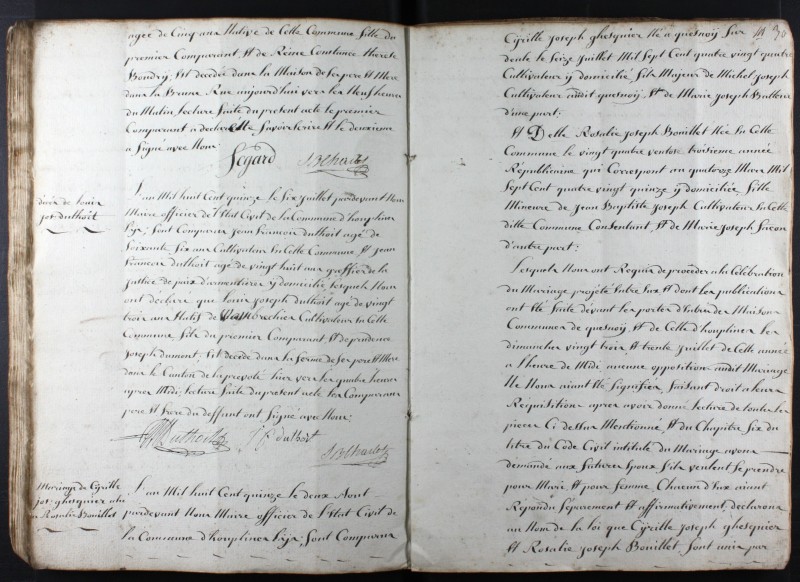 agée de Cinq ans Native de Cette Commune fille du
premier Comparant Et de Reine Constance therese
Boudry, Est decedée dans la Maison de Ses pere Et Mere
dans la Rue aujourd'hui vers les Neuf heures
du Matin, Lecture faite du present acte le premier
Comparant a declaré Ne Savoir Ecrire Et le deuxieme
a Signé avec Nous
Segard
décès de louis
jos. duthoit
L'an Mil huit Cent quinze le Six juillet pardevant Nous
Maire officier de l'Etat Civil de la Commune d'houplines
Lys, Sont Comparus Jean francois duthoit agé de
Soixante Six ans Cultivateur En Cette Commune Et Jean
francois duthoit agé de vingt huit ans greffier de la
Justice de paix d'armentieres y domicilié, lesquels Nous
ont declaré que louis joseph duthoit agé de vingt
trois ans Natif de Cultivateur En Cette
Commune fils du premier Comparant Et de prudence
Joseph dumont, Est decedé dans la ferme de Ses pere Et Mere
dans le Canton de la prevoté hier vers les quatre heures
apres Midi, lecture faite du present acte les Comparans
pere Et frere du deffunt ont Signé avec Nous
duthoit
Mariage de Cyrille
jos. ghesquier a la
Rosalie Bouillet
L'an Mil huit Cent quinze le deux Aout
pardevant Nous Maire officier de l'Etat Civil de
la Commune d'houplines Lys, Sont Comparus
Cyrille Joseph ghesquier Né a quesnoij Sur
deule le Seize Juillet Mil Sept Cent quatre vingt quatre
Cultivateur y domicilié, fils Majeur de Michel Joseph
Cultivateur audit quesnoij, Et de Marie Joseph
d'une part;
Et Delle Rosalie Joseph Bouillet Née En Cette
Commune le vingt quatre ventose troisieme année
Républicaine qui Correspont au quatorze Mars Mil
Sept Cent quatre vingt quinze y domiciliée, fille
Mineure de Jean Baptiste Joseph Cultivateur En Cette
ditte Commune Consentant, Et de Marie Joseph
d'autre part;
Lesquels Nous ont Requis de proceder a la Célébration
du Mariage projeté Entre Eux Et dont les publications
ont Eté faite devant les portes d'Entrée des Maisons
Communes de quesnoij Et de Celle d'houplines les
dimanches vingt trois Et trente Juillet de Cette année
a l'heure de Midi aucune opposition audit Mariage
Ne Nous aiant Eté Signifiée, faisant droit a leurs
Requisitions apres avoir donné lecture de toutes les
pieces Ci dessus Mentionnées, Et du Chapitre Six du
titre du Code Civil intitulé du Mariage avons
demandé aux futurs Epoux S'ils veulent Se prendre
pour Mari Et pour femme Chacun d'Eux aiant
Répondu Séparement Et affirmativement, declarons
au Nom de la loi que Cyrille Joseph ghesquier
Et Rosalie Joseph Bouillet, Sont unis par